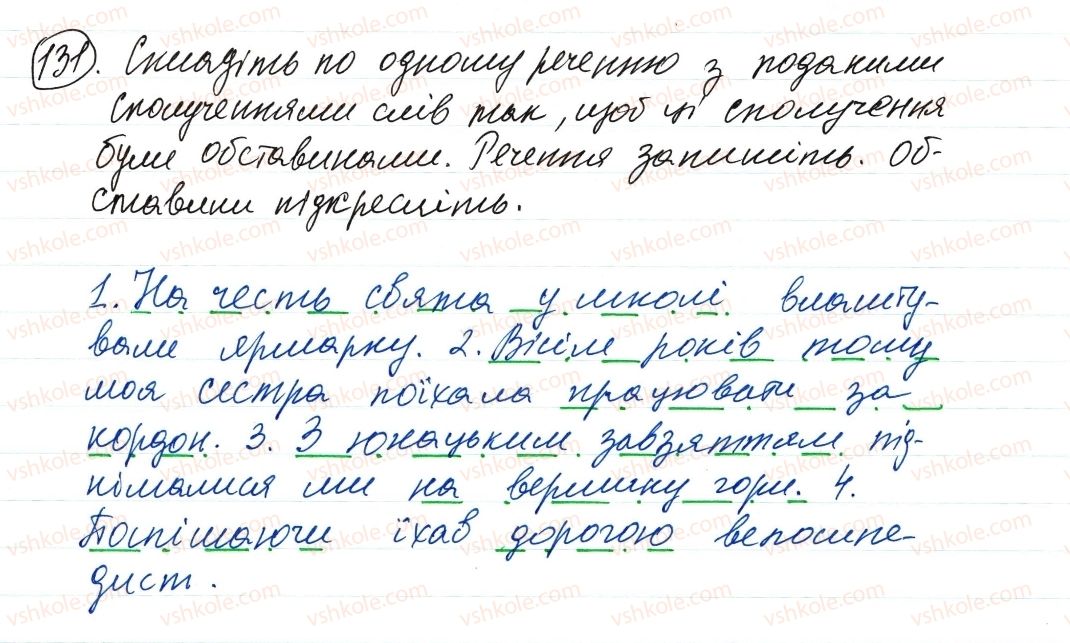 131. Складіть по одному реченню з поданими
сполученнями слів так, щоб ці сполучення
були обставинами. Речення запишіть. Об-
ставини підкресліть.
1. На честь свята у школі влашту-
вали ярмарку. 2. Вісім років тому
моя сестра поїхала працювати за
кордон. 3. З юнацьким завзяттям під-
німалися ми на вершину гори. 4.
Поспішаючи їхав дорогою велосипе-
дист.